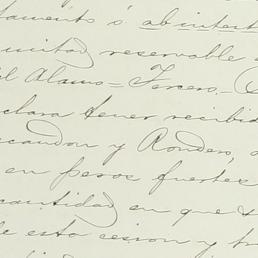 tamento ó ab intest
mitad reservable
el Alamo=Tercero=
clara tener recibid
scandon y Rondero,
en pesos fuertes
cantidad en que s
de esta cesion y tr